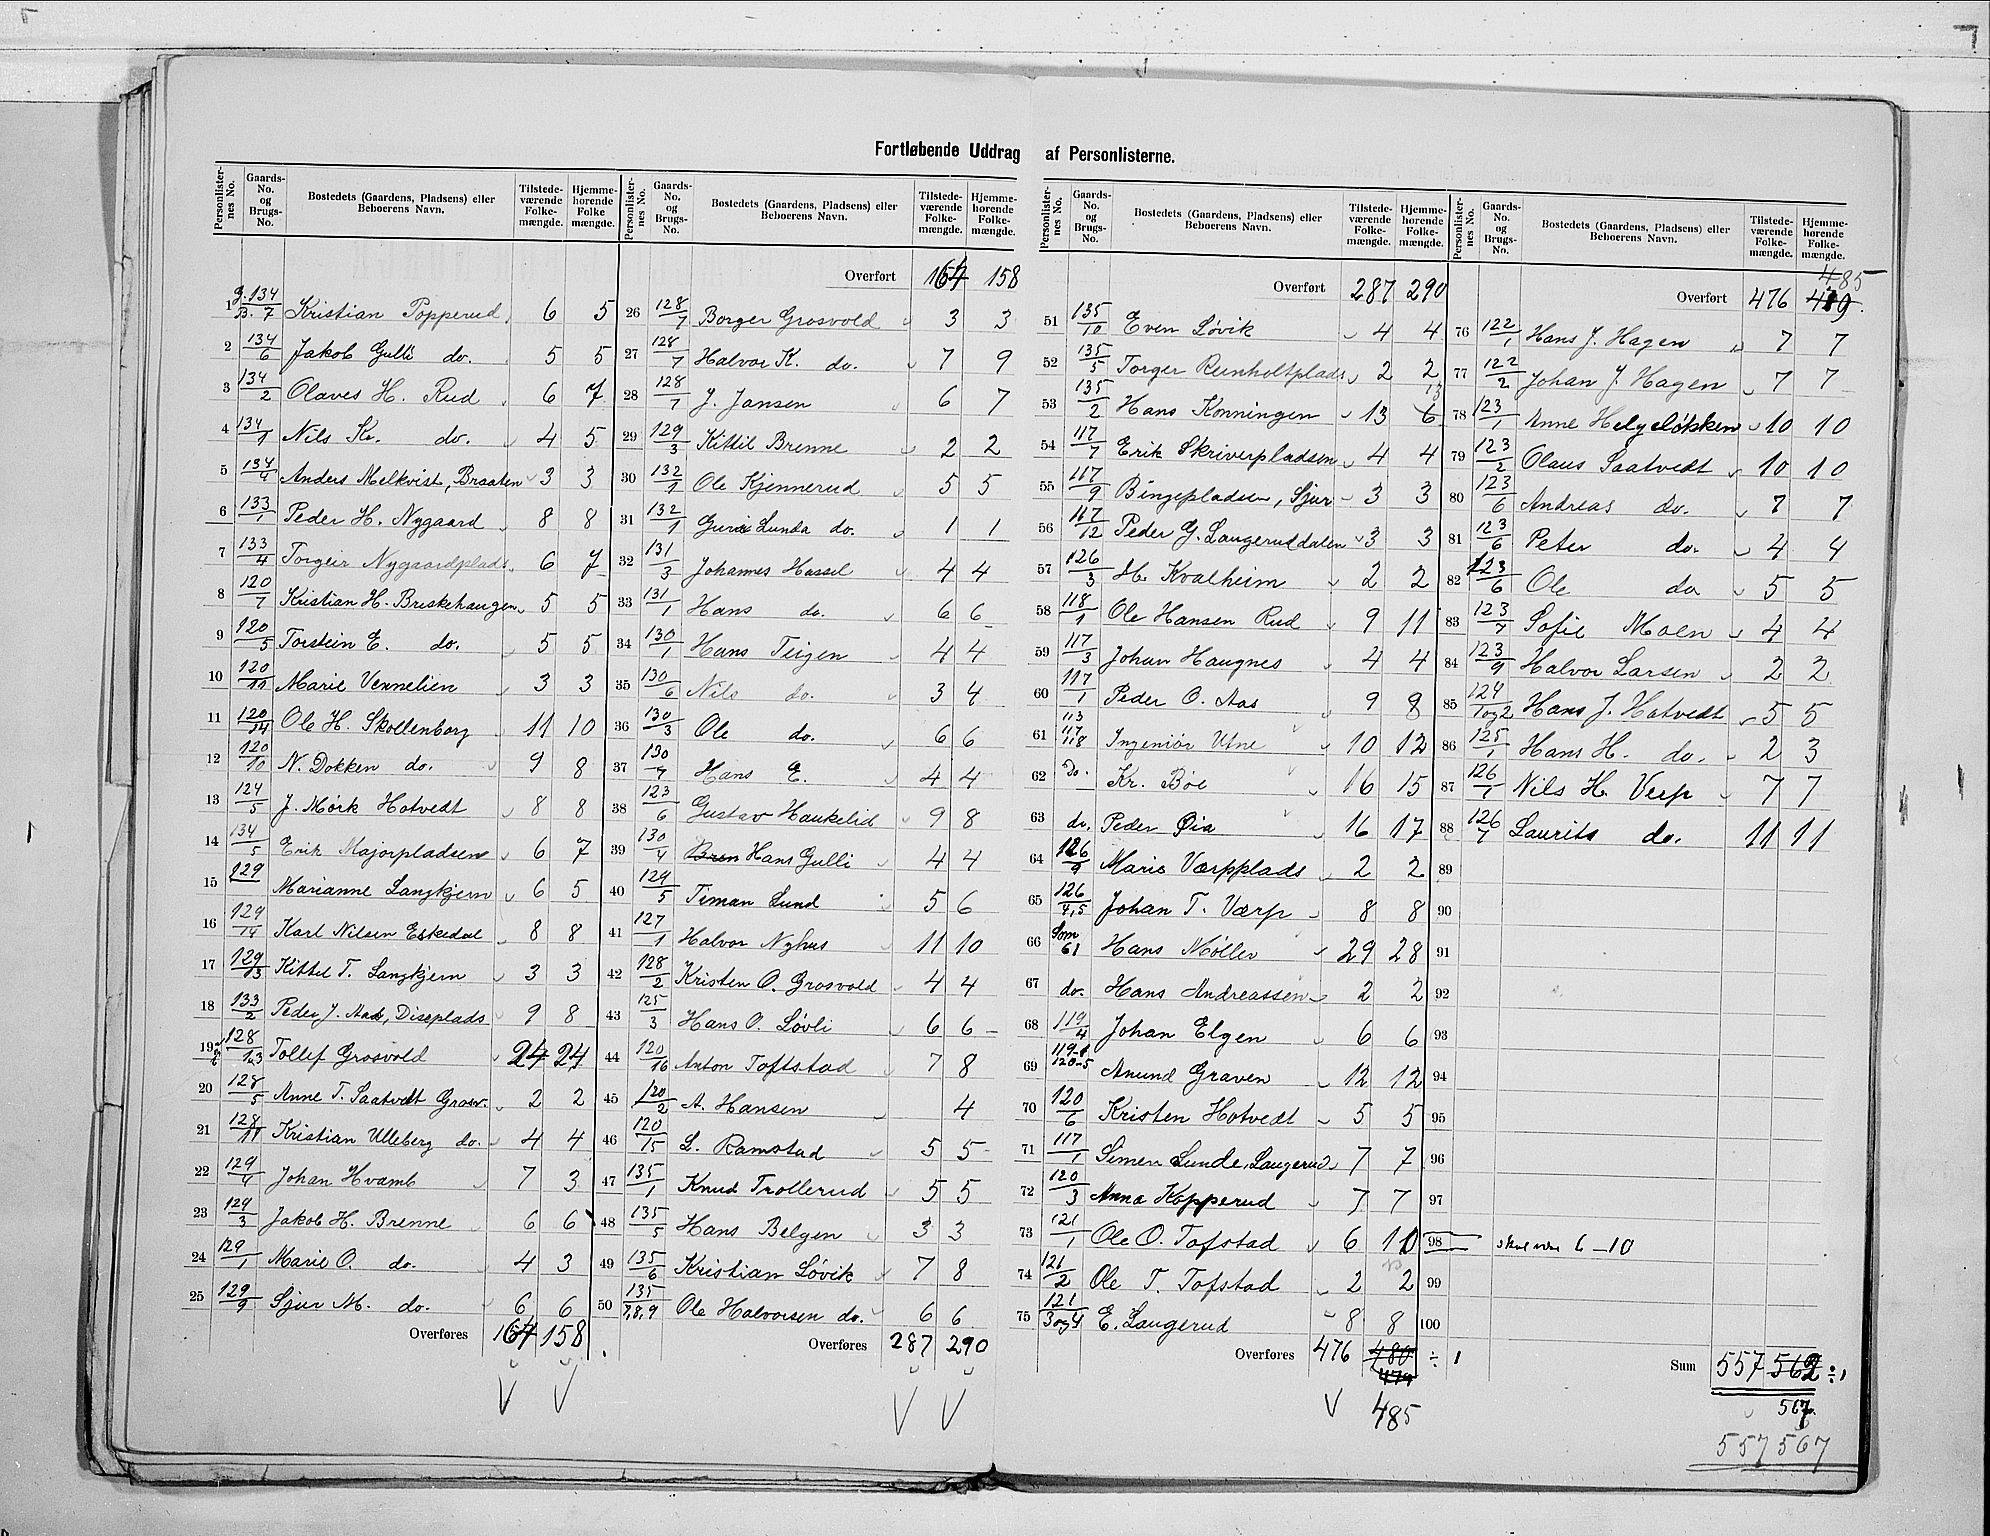 Fortløbende Uddrag af Personlisterne.
Personlister-nes No. Gaards-No. og Brugs-No. Bostedets (Gaardens, Pladsens) eller Beboerens Navn. Tilstede-værende Folke-mængde. Hjemme-hørende Folke-mængde.
1 G. 134 / B. 7 Kristian Popperud 6 5
2 134/6 Jakob Gulli do. 5 5
3 134/2 Olaves H. Rud 6 7
4 134/1 Nils Kr. do. 4 5
5 134/4 Anders Melkvist, Braaten 3 3
6 133/1 Peder H. Nygaard 8 8
7 133/4 Torgeir Nygaardplads 6 7
8 120/7 Kristian H. Briskehaugen 5 5
9 120/5 Torstein E. do. 5 5
10 120/11 Marie Vennelien 3 3
11 120/14 Ole H. Skollenborg 11 10
12 120/10 N. Dokken do. 9 8
13 124/5 J. Mørk Hotvedt 8 8
14 134/5 Erik Majorpladsen 6 7
15 129 Marianne Langkjern 6 5
16 129/14 Karl Nilsen Eskedal 8 8
17 129/13 Kittel T. Langkjern 3 3
18 133/2 Peder J. Aas, Diseplads 9 8
19 128/1,3 Tollef Grosvold 24 24
20 128/5 Anne T. Saatvedt Grosv. 2 2
21 128/11 Kristian Ulleberg do. 4 4
22 129/4 Johan Hvamb 7 3
23 129/3 Jakob H. Brenne 6 6
24 129/1 Marie O. do. 4 3
25 129/9 Sjur M. do. 6 6
Overføres 164 158
Personlister-nes No. Gaards-No. og Brugs-No. Bostedets (Gaardens, Pladsens) eller Beboerens Navn. Tilstede-værende Folke-mængde. Hjemme-hørende Folke-mængde.
Overført 164 158
26 128/7 Borger Grosvold 3 3
27 128/7 Halvor K. do. 7 9
28 128/7 J. Jansen 6 7
29 129/3 Kittil Brenne 2 2
30 132/1 Ole Kjennerud 5 5
31 132/1 Guri Lunda do. 1 1
32 131/3 Johannes Hassel 4 4
33 131/1 Hans do. 6 6
34 130/1 Hans Teigen 4 4
35 130/6 Nils do. 3 4
36 130/3 Ole do. 6 6
37 130/7 Hans E. 4 4
38 123/6 Gustav Haukelid 9 8
39 130/4 Bren Hans Gulli 4 4
40 129/5 Timan Lund 5 6
41 127/1 Halvor Nyhus 11 10
42 128/2 Kristen O. Grosvold 4 4
43 125/3 Hans O. Løvli 6 6
44 120/16 Anton Toftstad 7 8
45 120/2 A. Hansen 4
46 120/15 L. Ramstad 5 5
47 135/1 Knud Trollerud 5 5
48 135/5 Hans Belgen 3 3
49 135/6 Kristian Løvik 7 8
50 135/7,8,9 Ole Halvorsen do. 6 6
Overføres 287 290
Personlister-nes No. Gaards-No. og Brugs-No. Bostedets (Gaardens, Pladsens) eller Beboerens Navn. Tilstede-værende Folke-mængde. Hjemme-hørende Folke-mængde.
Overført 287 290
51 135/10 Even Løvik 4 4
52 135/5 Torger Reinholtplads 2 2
53 135/2 Hans Konningen 13 6 13
54 117/7 Erik Skriverpladsen 4 4
55 117/9 Bingepladsen, Sjur 3 3
56 117/12 Peder G. Laugeruddalen 3 3
57 126/3 H. Kvalheim 2 2
58 118/1 Ole Hansen Rud 9 11
59 117/3 Johan Haugnes 4 4
60 117/1 Peder O. Aas 9 8
61 113 117 118 Ingeniør Utne 10 12
62 Do. Kr. Bøe 16 15
63 do. Peder Øia 16 17
64 126/9 Marie Værpplads 2 2
65 126/4,5 Johan T. Værp 8 8
66 Som 61 Hans Møller 29 28
67 do. Hans Andreassen 2 2
68 119/4 Johan Elgen 6 6
69 119-1 120-5 Anund Graven 12 12
70 120/6 Kristen Hotvedt 5 5
71 117/1 Simen Lunde, Laugerud 7 7
72 120/3 Anna Kopperud 7 7
73 121/1 Ole O. Tofstad 6 10
74 121/2 Ole T. Tofstad 2 2
75 121/3 og 4 E. Laugerud 8 8
Overføres 476 480 ÷ 1
479
485
Personlister-nes No. Gaards-No. og Brugs-No. Bostedets (Gaardens, Pladsens) eller Beboerens Navn. Tilstede-værende Folke-mængde. Hjemme-hørende Folke-mængde.
485
Overført 476 479
76 122/1 Hans J. Hagen 7 7
77 122/2 Johan J. Hagen 7 7
78 123/1 Anne Helgeløkken 10 10
79 123/2 Olaus Saatvedt 10 10
80 123/6 Andreas do. 7 7
81 123/6 Peter do. 4 4
82 123/6 Ole do 5 5
83 123/7 Sofie Moen 4 4
84 123/9 Halvor Larsen 2 2
85 124/1 og 2 Hans J. Hotvedt 5 5
86 125/1 Hans H. do. 2 3
87 126/1 Nils H. Verp 7 7
88 126/7 Laurits do. 11 11
89
90
91
92
93
94
95
96
97
98 skal være 6 – 10
99
100
Sum 557 562 ÷ 1
567
557 567